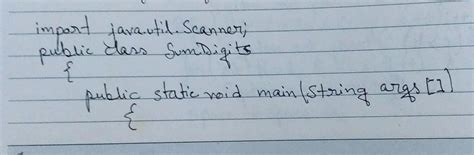 import java.util.Scanner;
public class SumDigits
{
public static void main(String args[])
{